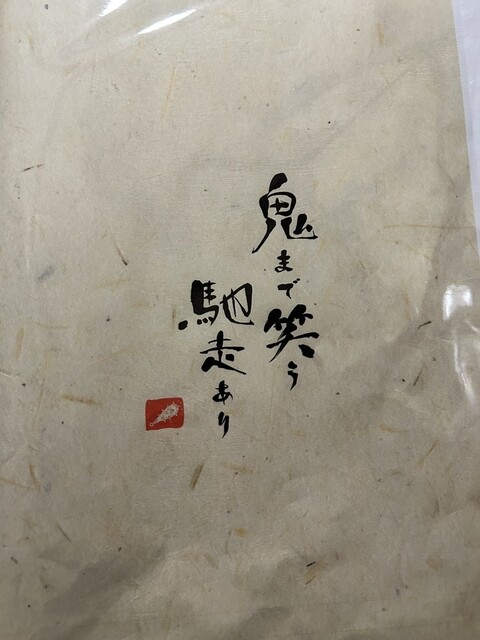 鬼まで笑う
馳走あり